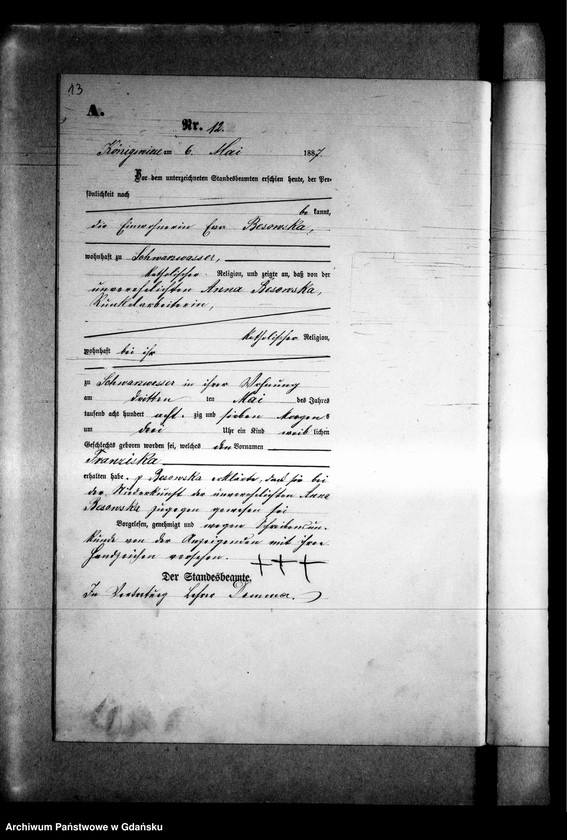 13
A.
Nr. 12.
Königswiese am 6. Mai 1887.
Vor dem unterzeichneten Standesbeamten erschien heute, der Per-
sönlichkeit nach
be kannt,
die Einwohnerin Eva Besowska,
wohnhaft zu Schwarzwasser,
katholischer Religion, und zeigte an, daß von der
unverehelichten Anna Besowska,
katholischer Religion,
wohnhaft bei ihr
zu Schwarzwasser in ihrer Wohnung
am dritten ten Mai des Jahres
tausend acht hundert acht zig und sieben Morgens
um drei Uhr ein Kind weib lichen
Geschlechts geboren worden sei, welches den Vornamen
Franziska
erhalten habe. p Besowska erklärte, daß sie bei
der Niederkunft der unverehelichten Anna
Besowska zugegen gewesen sei
Vorgelesen, genehmigt und wegen Schreibensun-
kunde von der Anzeigenden mit ihren
Handzeichen versehen. + + +
Der Standesbeamte.
In Vertretung
Archiwum Państwowe w Gdańsku